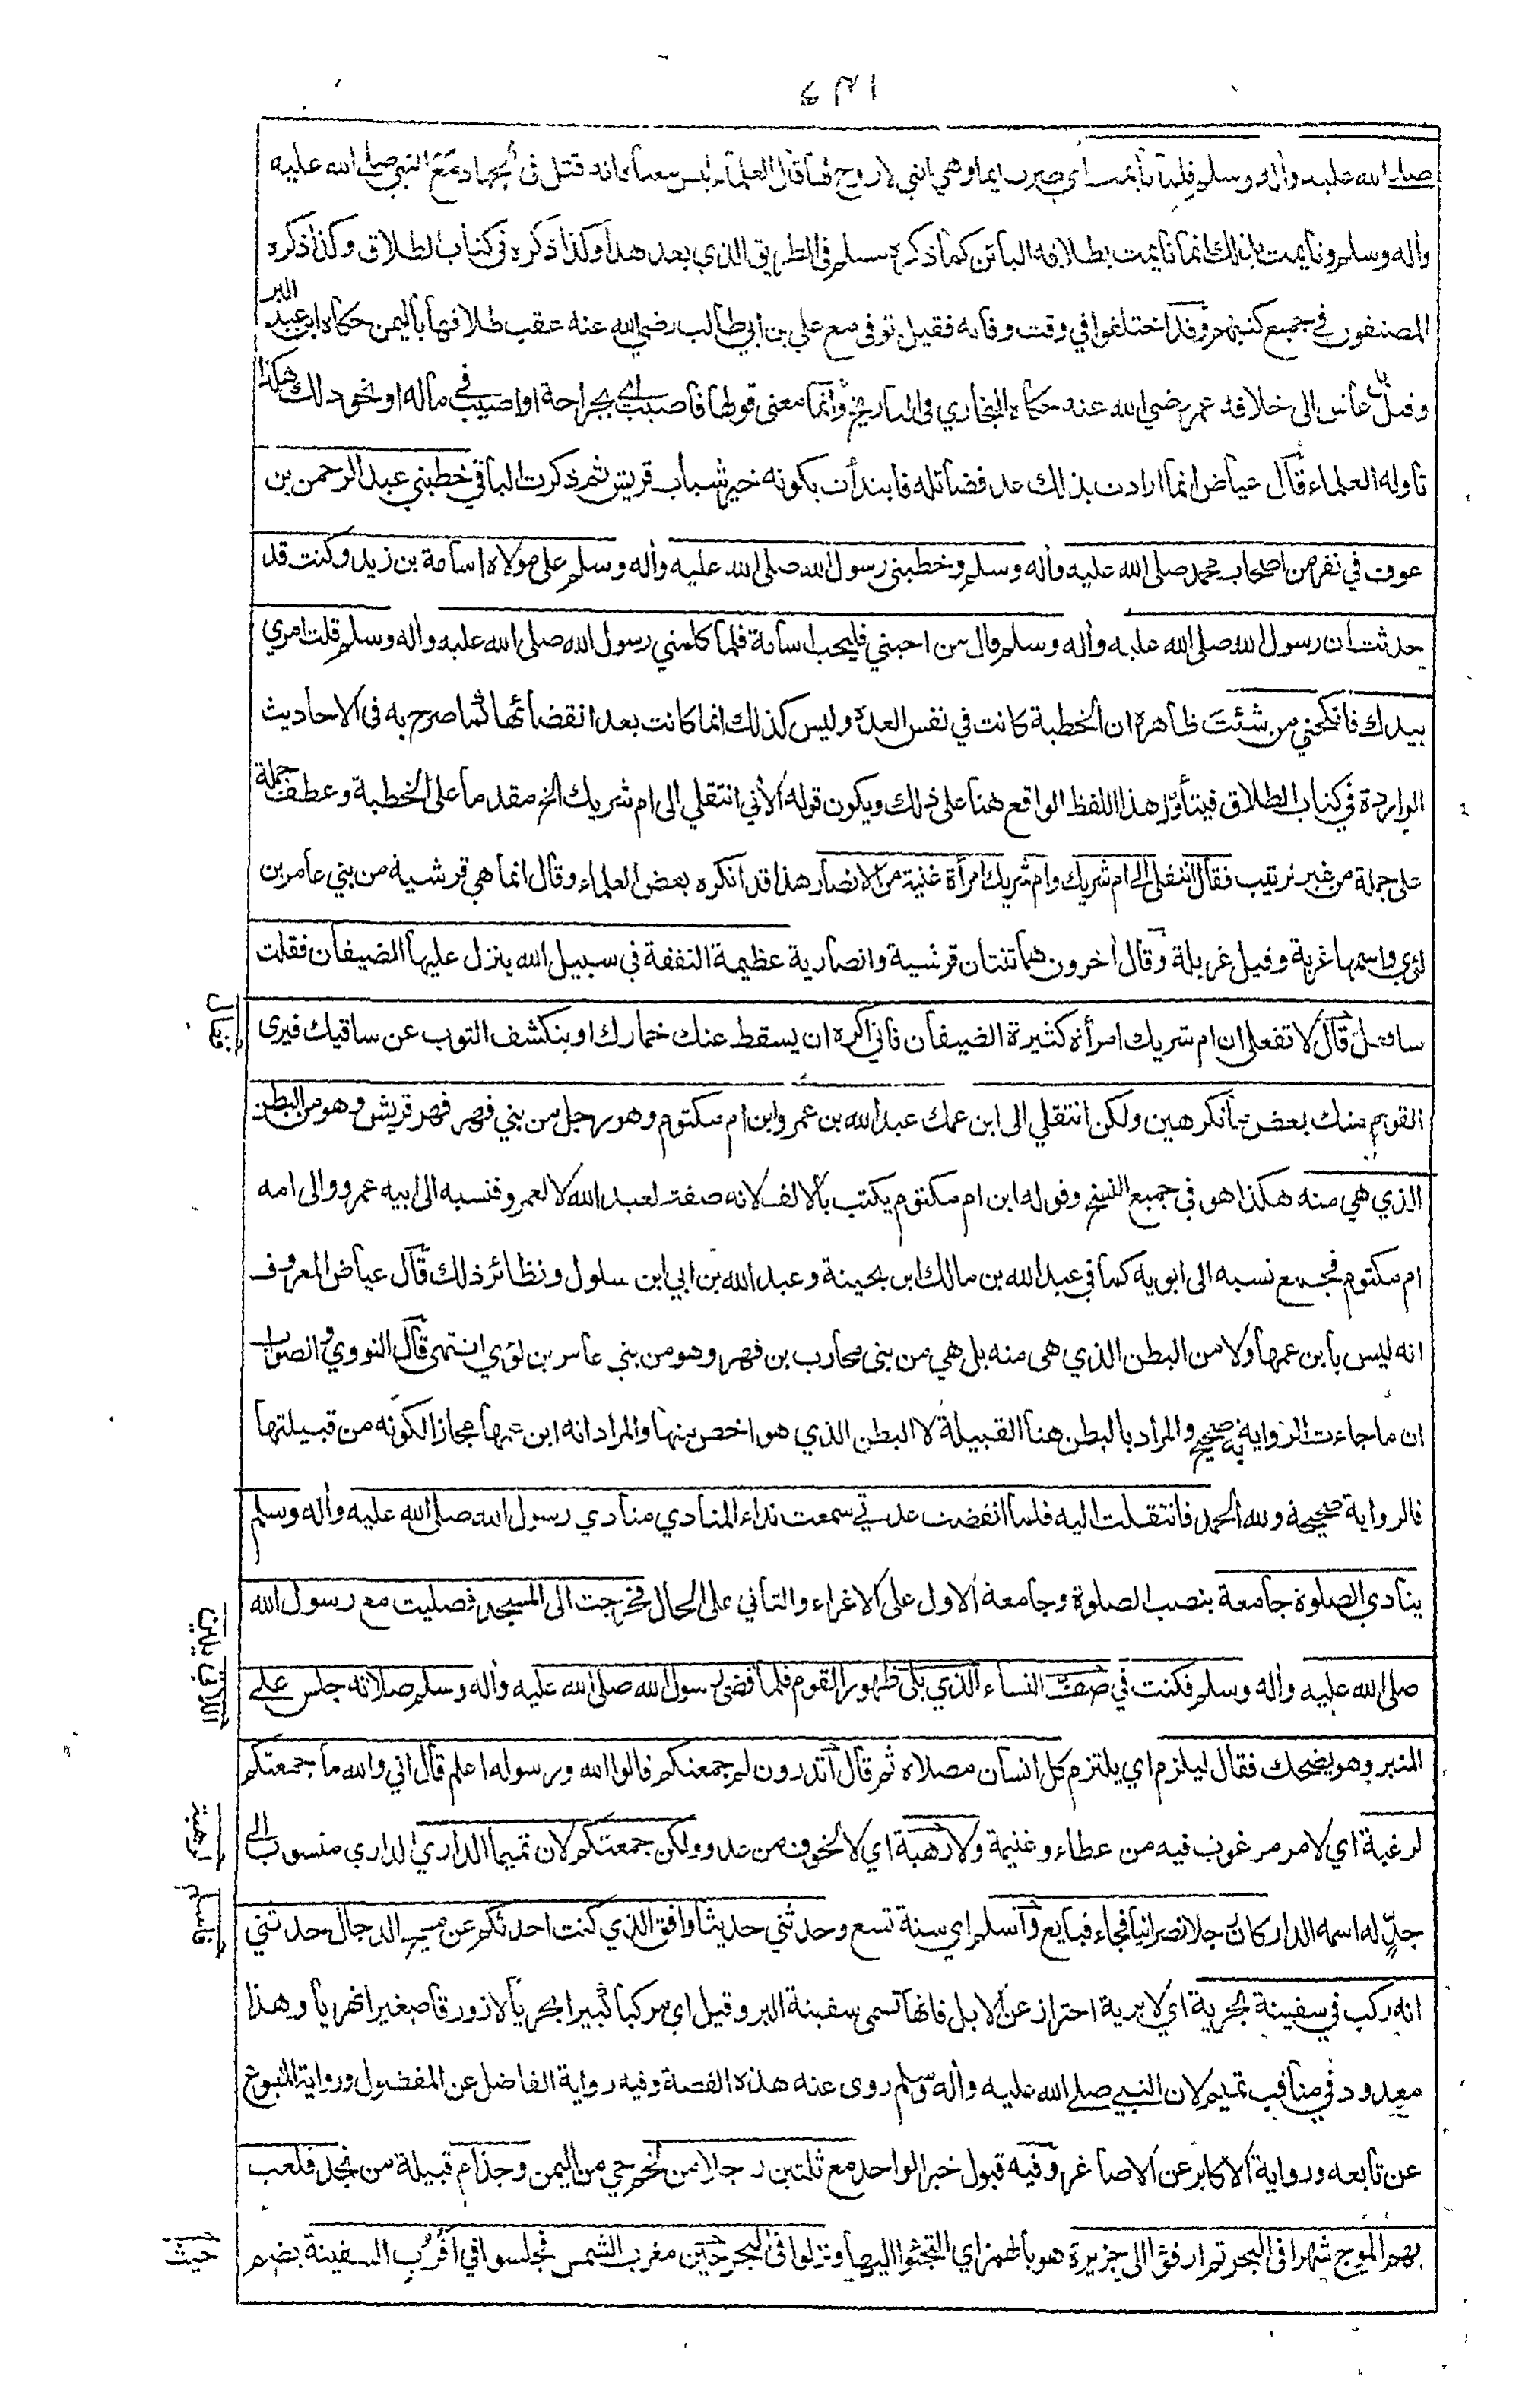 ٤٣١
صلى الله عليه وأله وسلم فلما تأيمت اي صرت ايما وهي التي لا زوج لها قال العلماء ليس معناه انه قتل في الجهاد مع النبي صلى الله عليه
وأله وسلم وتأيمت بذلك انما تأيمت بطلاقه البائن كما ذكره مسلم في الطريق الذي بعد هذا وكذا ذكره في كتاب الطلاق وكذا ذكره
المصنفون في جميع كتبهم وقد اختلفوا في وقت وفاته فقيل توفي مع علي بن ابي طالب رضي الله عنه عقب طلاقها باليمن حكاه ابن عبد البر
وقيل بل عاش الى خلافة عمر رضي الله عنه حكاه البخاري في التاريخ وانما معنى قولها فاصيب اي بجراحة او اصيب في ماله او نحو ذلك هكذا
تأوله العلماء قال عياض انما ارادت بذلك عد فضائله فابتدأت بكونه خير شباب قريش ثم ذكرت الباقي خطبني عبد الرحمن بن
عوف في نفر من اصحاب محمد صلى الله عليه وأله وسلم وخطبني رسول الله صلى الله عليه وأله وسلم على مولاه اسامة بن زيد وكنت قد
حدثت ان رسول الله صلى الله عليه وأله وسلم قال من احبني فليحب اسامة فلما كلمني رسول الله صلى الله عليه وأله وسلم قلت امري
بيدك فانكحني من شئت ظاهره ان الخطبة كانت في نفس العدة وليس كذلك انما كانت بعد انقضائها كما صرح به في الاحاديث
الواردة في كتاب الطلاق فيتأول هذا اللفظ الواقع هنا على ذلك ويكون قوله الأتي انتقلي الى ام شريك الخ مقدما على الخطبة وعطف جملة
على جملة من غير ترتيب فقال انتقلي الى ام شريك وام شريك امرأة غنية من الانصار هذا قد انكره بعض العلماء وقال انما هي قرشية من بني عامر بن
لؤي واسمها غربة وقيل غربلة وقال أخرون هما ثنتان قرشية وانصارية عظيمة النفقة في سبيل الله ينزل عليها الضيفان فقلت
سافعل قال لا تفعلي ان ام شريك امرأة كثيرة الضيفان فاني اكره ان يسقط عنك خمارك او ينكشف الثوب عن ساقيك فيرى
فقال
القوم منك بعض ما تكرهين ولكن انتقلي الى ابن عمك عبد الله بن عمرو ابن ام مكتوم وهو رجل من بني فهر فهر قريش وهو من البطن
الذي هي منه هكذا هو في جميع النسخ وقوله ابن ام مكتوم يكتب بالالف لانه صفة لعبد الله لا لعمرو فنسبه الى ابيه عمرو والى امه
ام مكتوم فجمع نسبه الى ابويه كما في عبد الله بن مالك ابن بحينة وعبد الله بن ابي ابن سلول ونظائر ذلك قال عياض المعروف
انه ليس بابن عمها ولا من البطن الذي هي منه بل هي من بني محارب بن فهر وهو من بني عامر بن لؤي انتهى قال النووي والصواب
ان ما جاءت الرواية به صحيح والمراد بالبطن هنا القبيلة لا البطن الذي هو اخص منها والمراد انه ابن عمها مجازا لكونه من قبيلتها
فالرواية صحيحة ولله الحمد فانتقلت اليه فلما انقضت عدتي سمعت نداء المنادي منادي رسول الله صلى الله عليه وأله وسلم
ينادي الصلوة جامعة بنصب الصلوة وجامعة الاول على الاغراء والثاني على الحال فخرجت الى المسجد فصليت مع رسول الله
صلى الله عليه وأله وسلم فكنت في صف النساء الذي يلي ظهور القوم فلما قضى رسول الله صلى الله عليه وأله وسلم صلاته جلس على
اللاتي يلين
المنبر وهو يضحك فقال ليلزم اي يلتزم كل انسان مصلاه ثم قال أتدرون لم جمعتكم قالوا الله ورسوله اعلم قال اني والله ما جمعتكم
لرغبة اي لامر مرغوب فيه من عطاء وغنيمة ولا رهبة اي لا لخوف من عدو ولكن جمعتكم لان تميما الداري الداري منسوب الى
لرهبة
جد له اسمه الدار كان رجلا نصرانيا فجاء فبايع وأسلم اي سنة تسع وحدثني حديثا وافق الذي كنت احدثكم عن مسيح الدجال حدثني
فاسلم
انه ركب في سفينة بحرية اي لا برية احترازا عن الابل فانها تسمى سفينة البر وقيل اي مركبا كبيرا بحريا لا زورقا صغيرا نهريا وهذا
معدود في مناقب تميم لان النبي صلى الله عليه وأله وسلم روى عنه هذه القصة وفيه رواية الفاضل عن المفضول ورواية المتبوع
عن تابعه ورواية الاكابر عن الاصاغر وفيه قبول خبر الواحد مع ثلثين رجلا من لخم حي من اليمن وجذام قبيلة من نجد فلعب
بهم الموج شهرا في البحر ثم ارفؤا الى جزيرة هو بالهمز اي التجئوا اليها ونزلوا في البحر حين مغرب الشمس فجلسوا في اقرب السفينة بضم
حيث